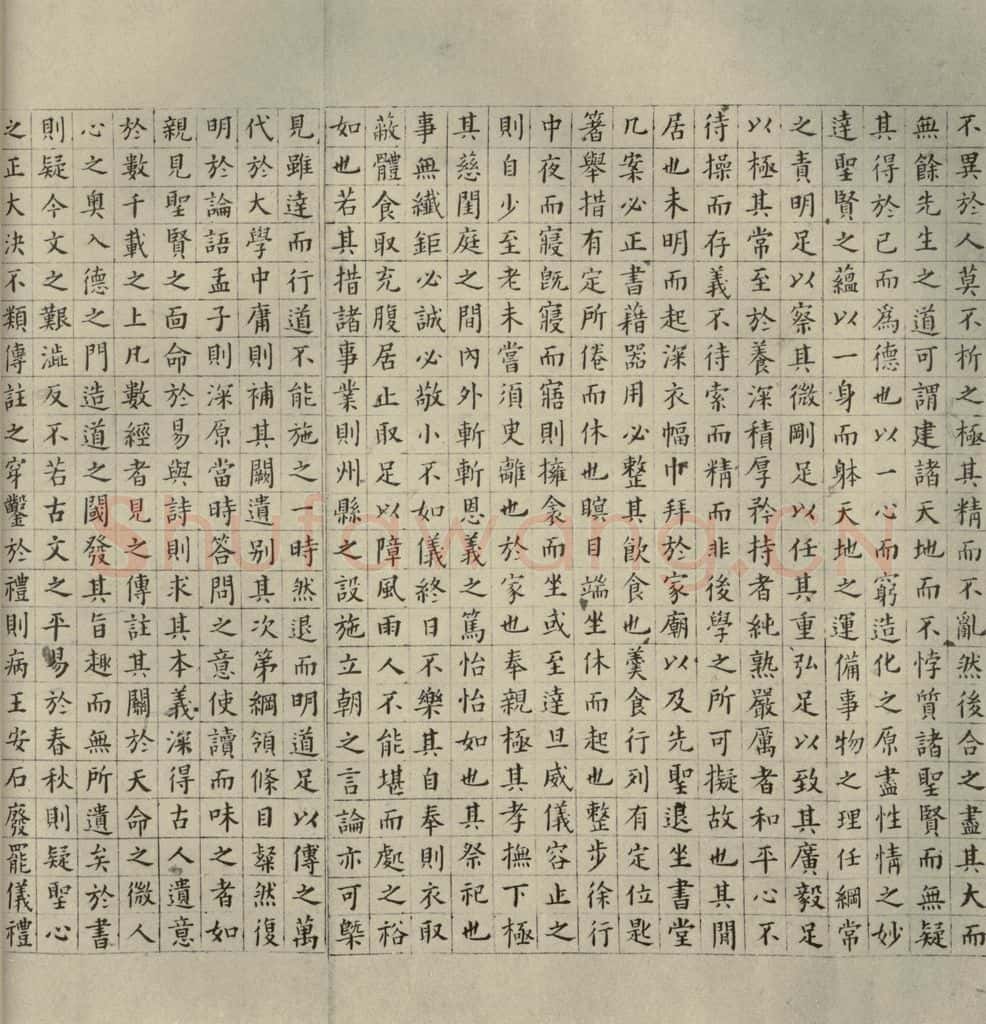 不異於人莫不析之極其精而不亂然後合之盡其大而
無餘先生之道可謂建諸天地而不悖質諸聖賢而無疑
其得於已而爲德也以一心而窮造化之原盡性情之妙
達聖賢之蘊以一身而躰天地之運備事物之理任綱常
之責明足以察其微剛足以任其重弘足以致其廣毅足
以極其常至於養深積厚矜持者純熟嚴厲者和平心不
待操而存義不待索而精而非後學之所可擬故也其閒
居也未明而起深衣幅巾拜於家廟以及先聖退坐書堂
几案必正書籍器用必整其飲食也羹食行列有定位匙
箸舉措有定所倦而休也瞑目端坐休而起也整步徐行
中夜而寢旣寢而寤則擁衾而坐或至達旦威儀容止之
則自少至老未嘗須臾離也於家也奉親極其孝撫下極
其慈閨庭之間內外斬斬恩義之篤怡怡如也其祭祀也
事無纖鉅必誠必敬小不如儀終日不樂其自奉則衣取
蔽體食取充腹居止取足以障風雨人不能堪而處之裕
如也若其措諸事業則州縣之設施立朝之言論亦可槩
見雖達而行道不能施之一時然退而明道足以傳之萬
代於大學中庸則補其闕遺别其次第綱領條目粲然復
明於論語孟子則深原當時答問之意使讀而味之者如
親見聖賢之面命於易與詩則求其本義深得古人遺意
於數千載之上凡數經者見之傳註其關於天命之微人
心之奧入德之門造道之閾發其旨趣而無所遺矣於書
則疑今文之艱澁反不若古文之平易於春秋則疑聖心
之正大決不類傳註之穿鑿於禮則病王安石廢罷儀禮
Shufawang.CN